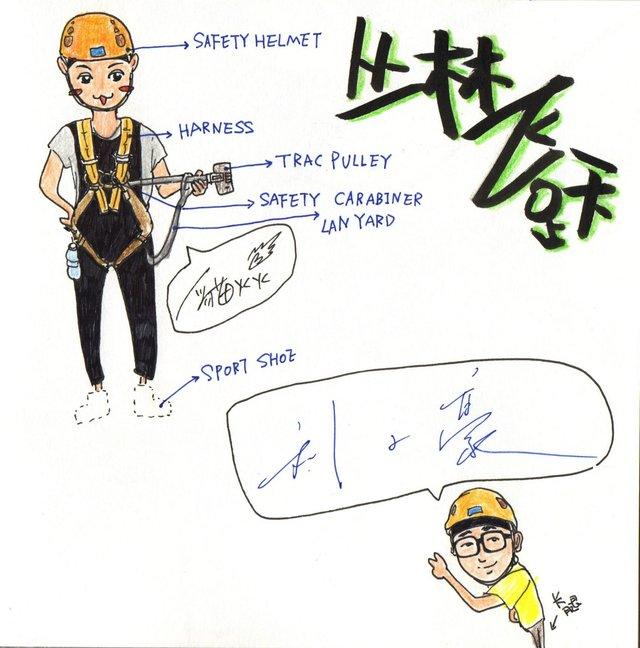 SAFETY HELMET
丛林飞跃
HARNESS
TRAC PULLEY
SAFETY CARABINER
LANYARD
SPORT SHOE
长腿